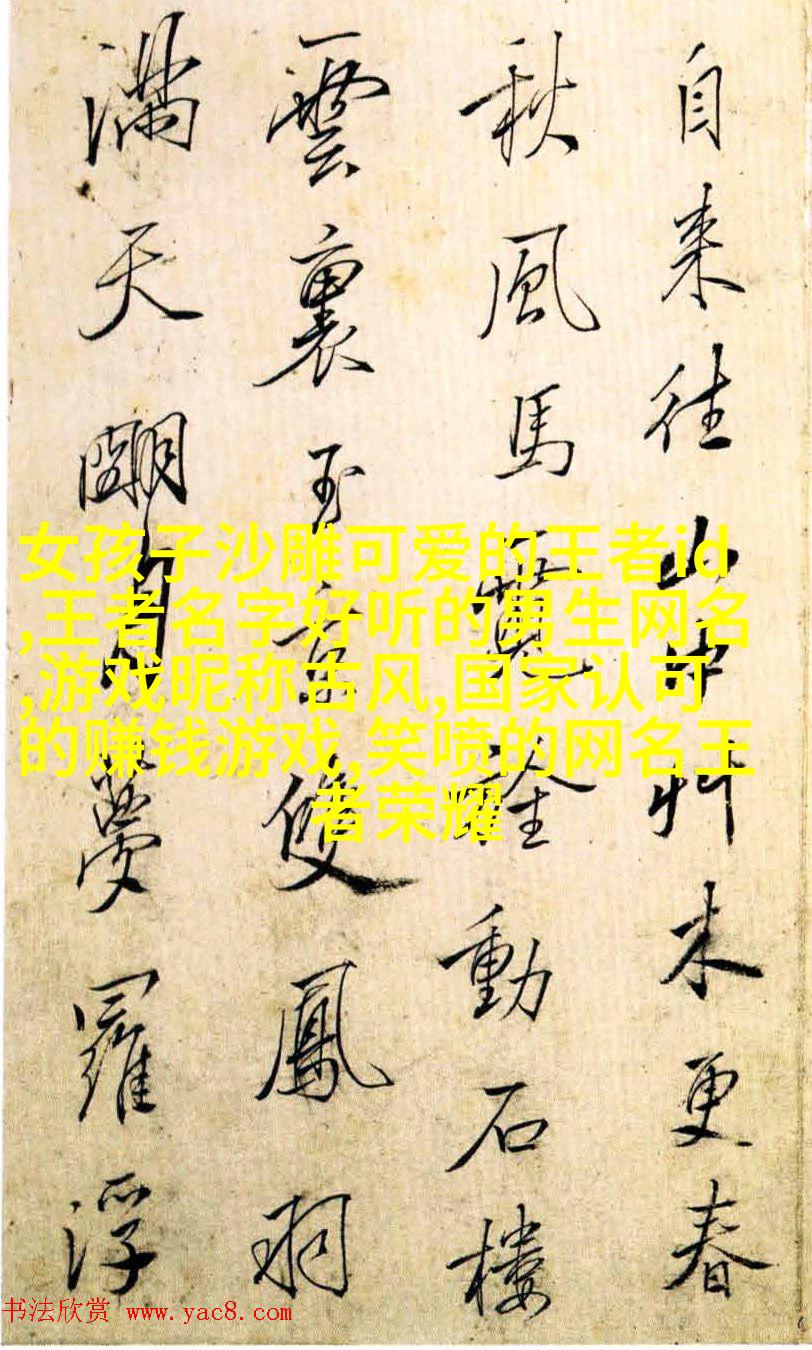 自来往山中艸木更春
秋風馬寬淦動石樓
雲裏玉京雙鳳羽
满天湖月夢羅浮
女孩子沙雕可爱的王者id
,王者名字好听的男生网名
,游戏昵称古风,国家认可
的赚钱游戏,笑喷的网名王
者荣耀
书法欣赏 www.yac8.com